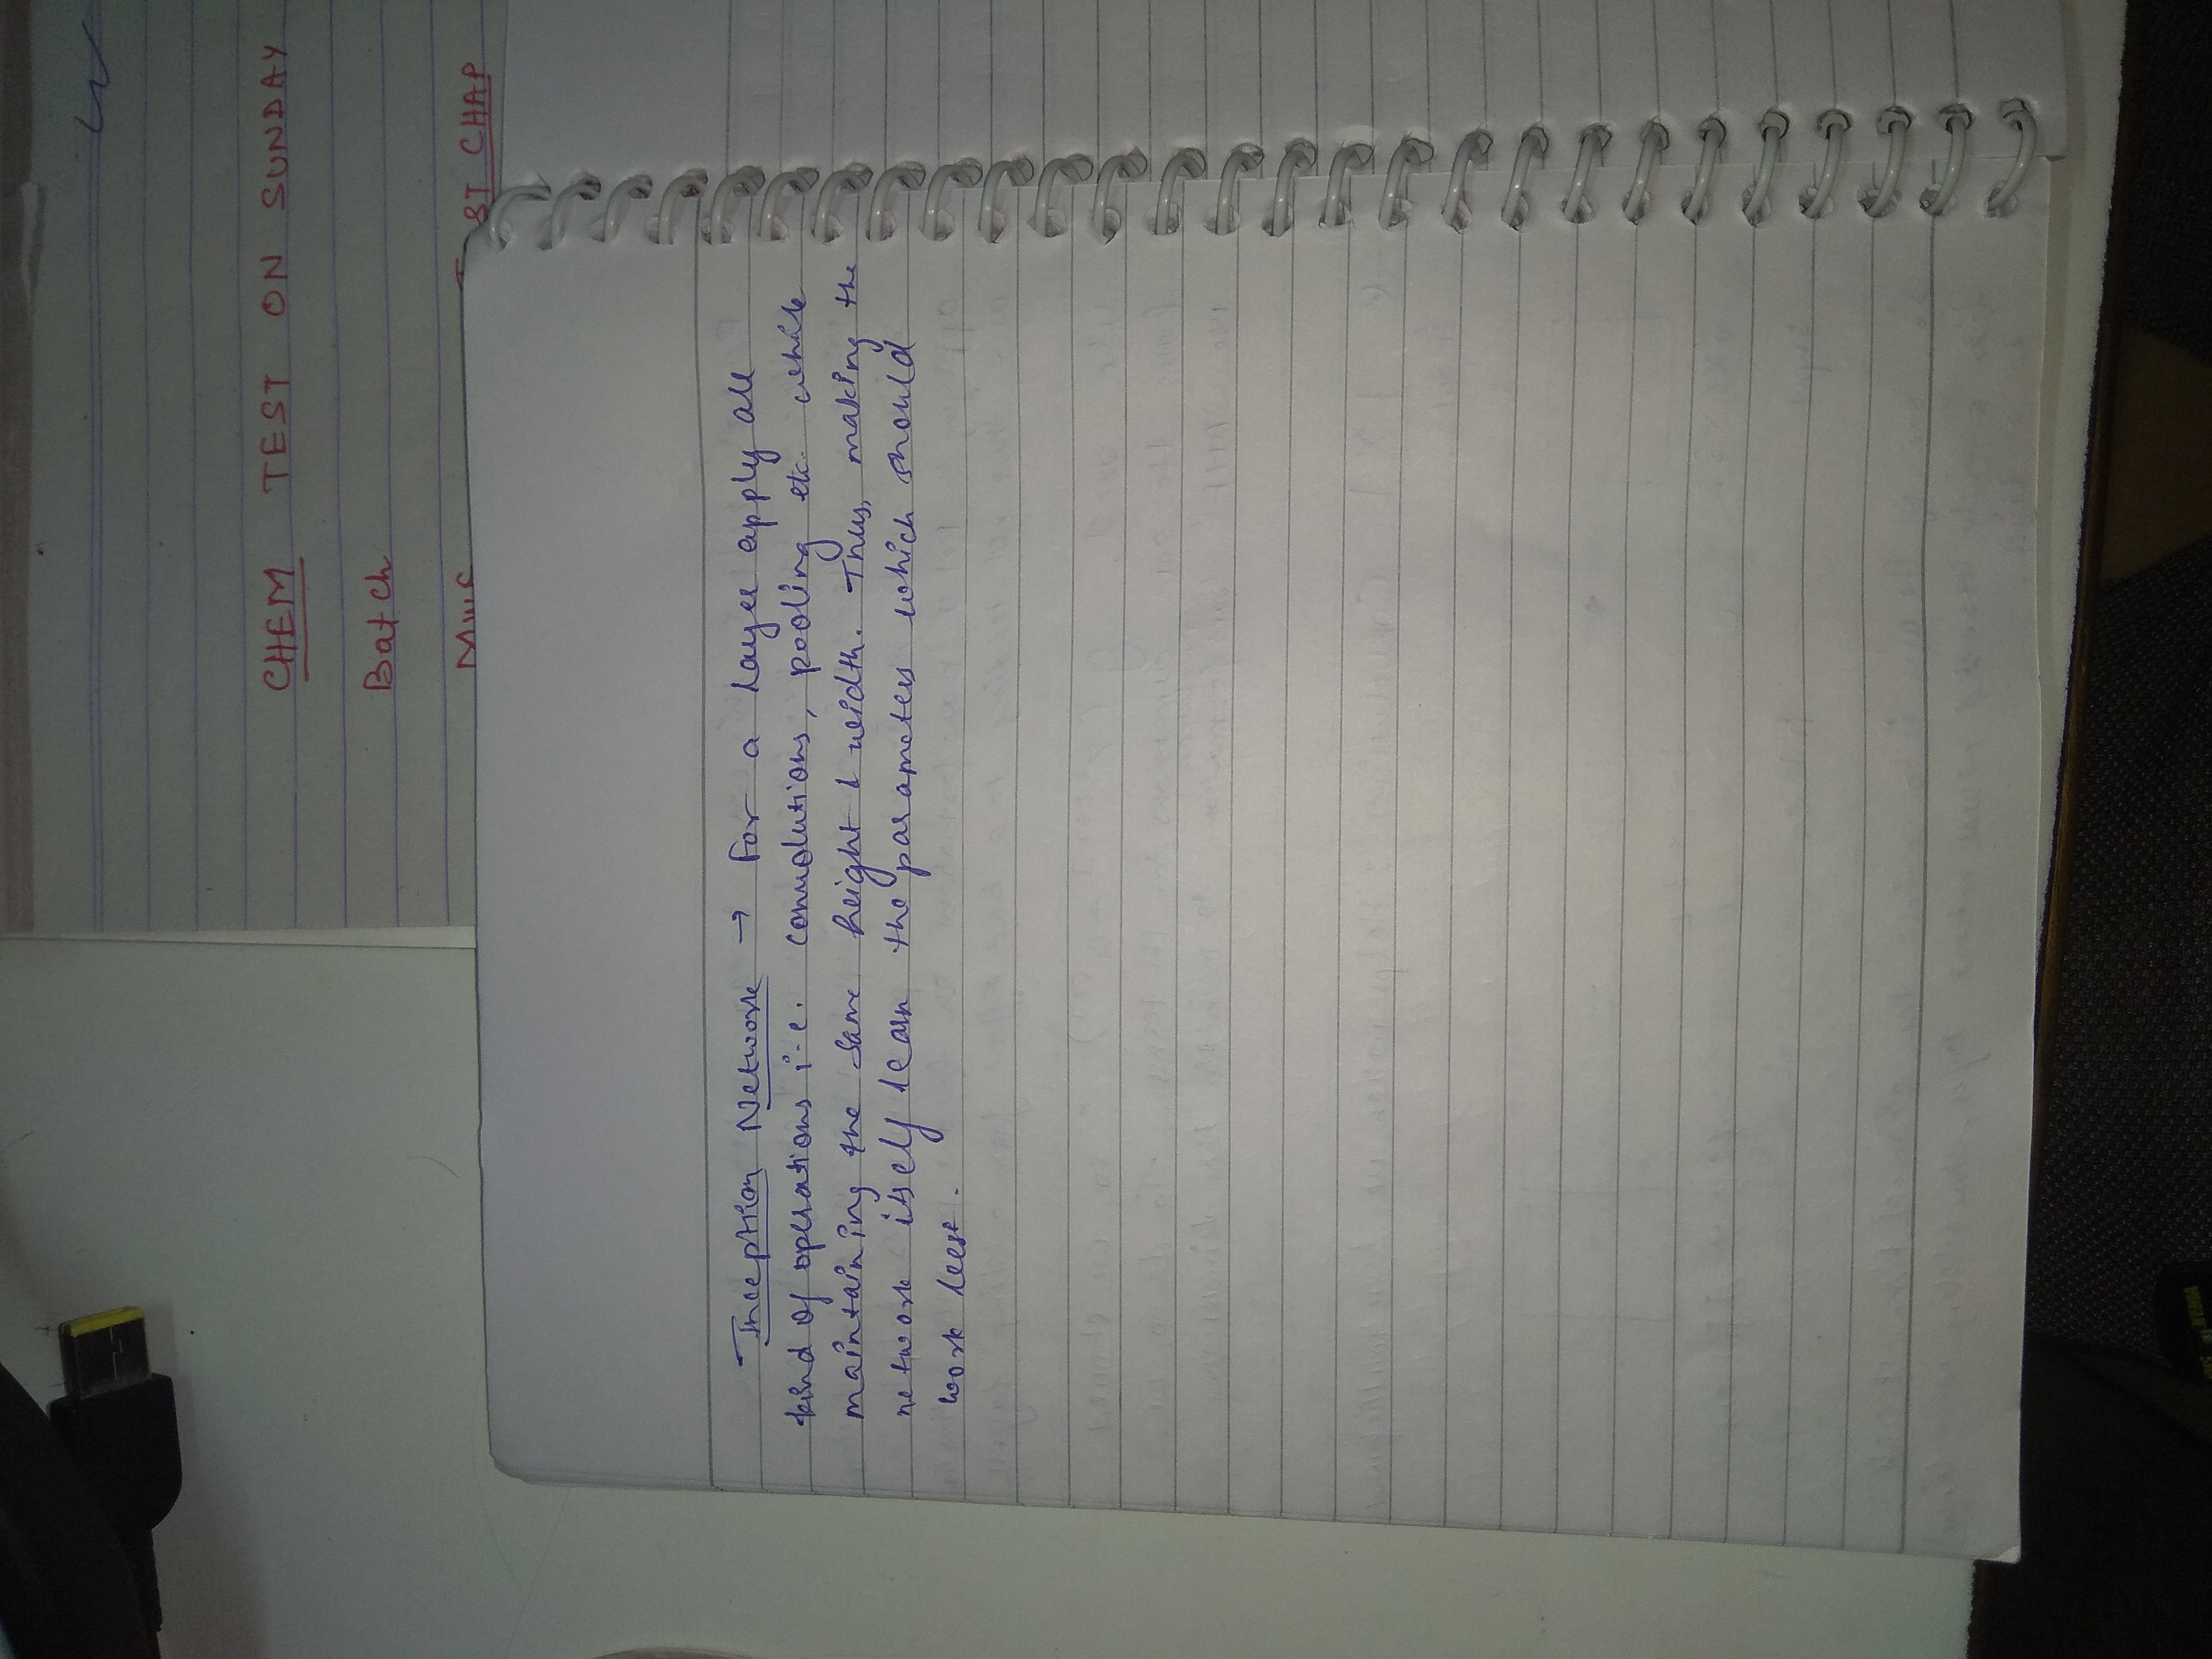 CHEM TEST ON SUNDAY
Batch
ST CHAP
Inception Network → For a layer apply all
kind of operations i.e. convolutions, pooling etc. while
maintaining the same height & width. Thus, making the
network itself learn the parameters which should
work best.